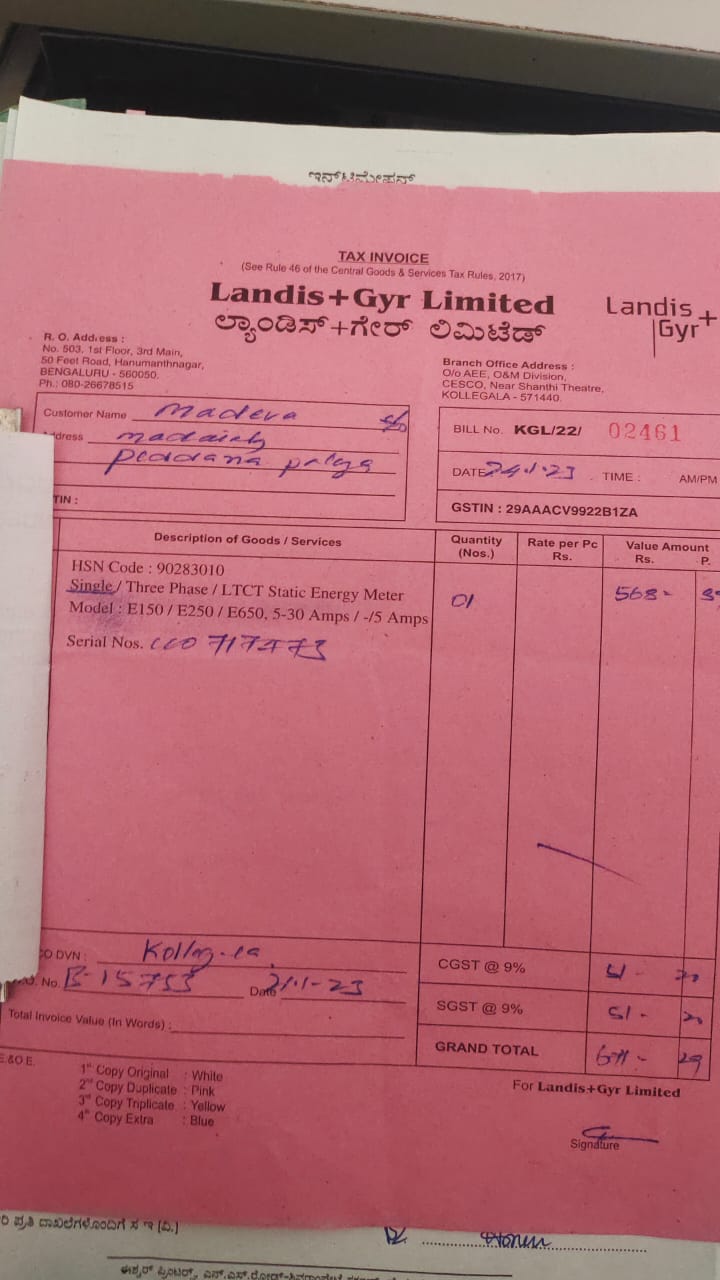 ಇನ್‌ಟಿಮೇಷನ್
TAX INVOICE
(See Rule 46 of the Central Goods & Services Tax Rules, 2017)
Landis+Gyr Limited
ಲ್ಯಾಂಡಿಸ್+ಗೇರ್ ಲಿಮಿಟೆಡ್
Landis+
Gyr
R. O. Address :
No. 503, 1st Floor, 3rd Main,
50 Feet Road, Hanumanthnagar,
BENGALURU - 560050.
Ph.: 080-26678515
Branch Office Address :
O/o AEE, O&M Division,
CESCO, Near Shanthi Theatre,
KOLLEGALA - 571440.
Customer Name Madeva S/o
ddress madaiah
Peddana palya
TIN :
BILL No. KGL/22/ 02461
DATE 24.1.23 TIME : AM/PM
GSTIN : 29AAACV9922B1ZA
Description of Goods / Services Quantity (Nos.) Rate per Pc Rs. Value Amount Rs. P.
HSN Code : 90283010
Single / Three Phase / LTCT Static Energy Meter 01 568-
Model : E150 / E250 / E650, 5-30 Amps / -/5 Amps
Serial Nos. 717473
O DVN :
No. B-15753 Date 21-1-23
Total Invoice Value (In Words) :
CGST @ 9% 51- 20
SGST @ 9% 51- 20
GRAND TOTAL 671- 29
E.&O.E.
1st Copy Original : White
2nd Copy Duplicate : Pink
3rd Copy Triplicate : Yellow
4th Copy Extra : Blue
For Landis+Gyr Limited
Signature
ರಿ ಪ್ರತಿ ದಾಖಲೆಗಳೊಂದಿಗೆ ಸ ಇ [ವಿ.]